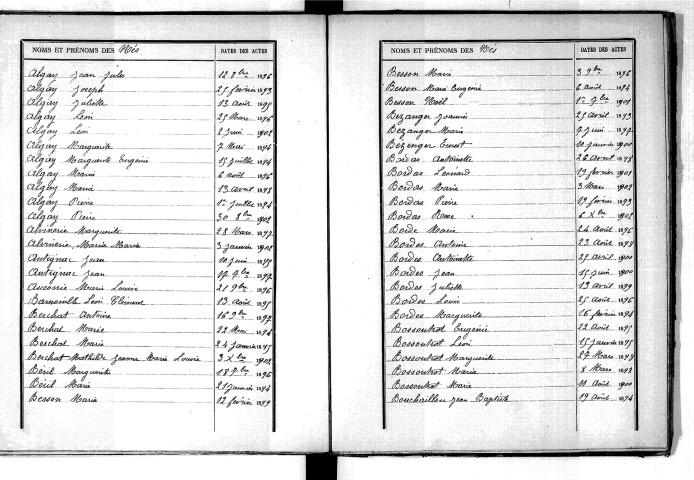 NOMS ET PRÉNOMS DES Nés DATES DES ACTES
Algay Jean Jules 12 8bre 1896
Algay Joseph 25 février 1893
Algay Juliette 13 Août 1895
Algay Léon 25 Mars 1896
Algay Léon 2 Juin 1901
Algay Marguerite 7 Mai 1894
Algay Marguerite Eugénie 15 Juillet 1894
Algay Marie 6 août 1896
Algay Marie 13 avril 1898
Algay Pierre 1er Juillet 1894
Algay Pierre 30 8bre 1902
Alvinerie Marguerite 28 Mars 1897
Alvinerie Maria Marie 3 janvier 1902
Antignac Jean 10 juin 1897
Antignac Jean 7bre 1897
Marie Louise 21 9bre 1896
Léon Clément 13 Août 1895
Berchat Antoine 16 9bre 1897
Berchat Marie 22 Mai 1894
Berchat Marie 24 Janvier 1895
Berchat Mathilde Jeanne Marie Louise 3 Xbre 1902
Béril Marguerite 18 7bre 1896
Béril Marie 21 janvier 1894
Besson Marie 12 février 1899
NOMS ET PRÉNOMS DES Nés DATES DES ACTES
Besson Marie 3 9bre 1896
Besson Marie Eugénie 6 août 1894
Besson Noël 1er 7bre 1901
Bezanger Joannès 25 Avril 1893
Bézanger Marie 7 Juin 1897
Bézenger Ernest 20 janvier 1900
Antoinette 26 Avril 1898
Bordas Léonard 19 février 1901
Bordas Marie 3 Mars 1902
Bordas Pierre 19 février 1893
Bordas Rose 6 Xbre 1902
Borde Marie 24 Août 1896
Bordes Antoine 23 Août 1894
Bordes Antoinette 25 Avril 1900
Bordes Jean 15 Juin 1900
Bordes Juliette 13 Avril 1899
Bordes Louis 25 Août 1896
Bordes Marguerite 26 février 1894
Bossoutrot Eugénie 22 Août 1895
Bossoutrot Léon 15 Janvier 1895
Bossoutrot Marguerite 27 Mars 1894
Bossoutrot Marie 8 Mars 1898
Bossoutrot Marie 11 Août 1900
Bouchaillou Jean Baptiste 19 Août 1894